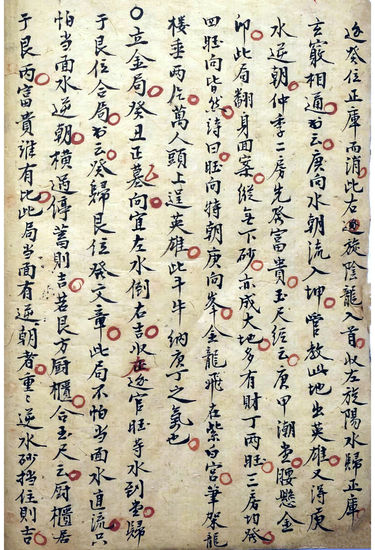 逆癸位正庫而消此左迴旋陰龍入首以左旋陽水歸正庫
玄竅相通書云庚向水朝流入坤管教此地出英雄又得庚
水逆朝仲季二房先發富貴玉尺经云庚甲潮堂腰懸金
印此局翻身面案縱無下砂亦成大地多有財丁两旺三房均發
四旺向皆然詩曰旺向特朝庚向峯金龍飛在紫白宮筆架龍
楼垂两片萬人頭上逞英雄此斗牛納庚丁之氣也
〇立金局癸丑正墓向宜左水倒右吉以正逆官旺等水到堂歸
于艮位合局書云癸歸艮位發文章此局不怕當面水直流只
怕当面水逆朝橫過停蓄則吉若艮方厨櫃合玉尺云厨櫃居
于艮丙富貴誰有比此局当面有逆朝者重重逆水砂挡住則吉